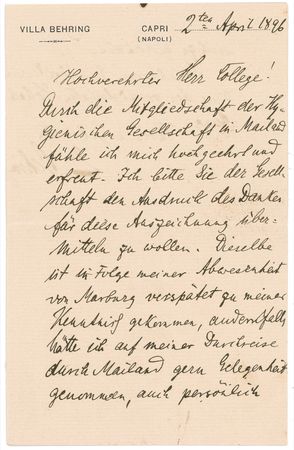 VILLA BEHRING
CAPRI
(NAPOLI)
2ten April 1896
Hochverehrter Herr College!
Durch die Mitgliedschaft der Hy-
gienischen Gesellschaft in Mailand
fühle ich mich hochgeehrt und
erfreut. Ich bitte Sie der Gesell-
schaft den Ausdruck des Dankes
für diese Auszeichnung über-
mitteln zu wollen. Dieselbe
ist in Folge meiner Abwesenheit
von Marburg verspätet zu meiner
Kenntniß gekommen, andernfalls
hätte ich auf meiner Durchreise
durch Mailand gern Gelegenheit
genommen, auch persönlich